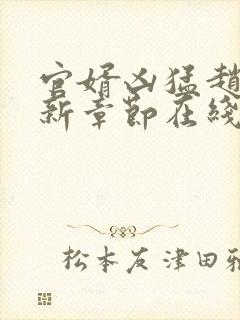 官婿凶猛趙
新章節在綫
松本友津田雅